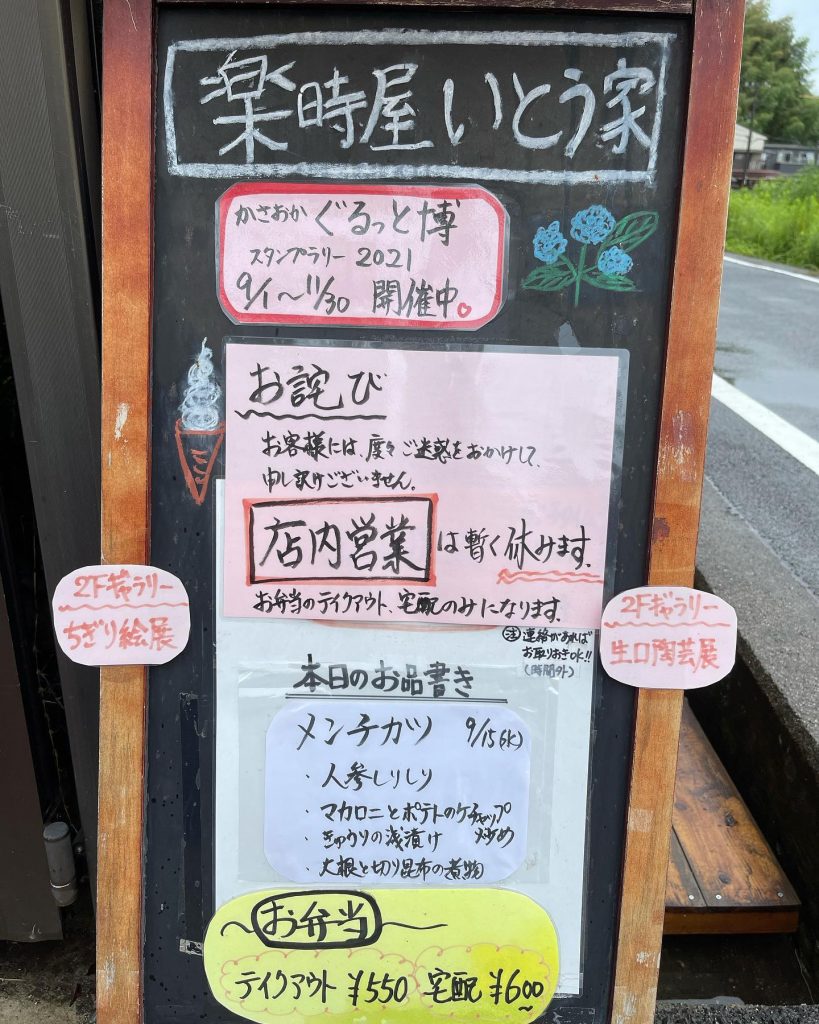 楽時屋いとう家
かさおか ぐるっと博
スタンプラリー 2021
9/1〜11/30 開催中。
お詫び
お客様には、度々ご迷惑をおかけして、
申し訳けございません。
店内営業は暫く休みます。
お弁当のテイクアウト、宅配のみになります。
注 連絡があれば
お取りおきOK!!
(時間外)
2Fギャラリー
ちぎり絵展
2Fギャラリー
生口陶芸展
本日のお品書き
メンチカツ 9/15(水)
・人参しりしり
・マカロニとポテトのケチャップ
炒め
・きゅうりの浅漬け
・大根と切り昆布の煮物
〜お弁当〜
テイクアウト ¥550 宅配 ¥600〜